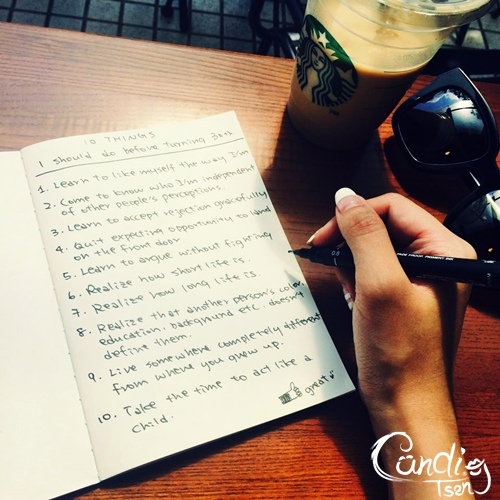 10 THINGS
I should do before turning
1. Learn to like myself the way I'm
2. Come to know who I'm independent
of other people's perceptions.
3. Learn to accept rejection gracefully
4. Quit expecting opportunity to land
on the front door
5. Learn to argue without fighting
6. Realize how short life is.
7. Realize how long life is.
8. Realize that another person's color,
education, background etc. doesn't
define them.
9. Live somewhere completely different
from where you grew up.
10. Take the time to act like a
child.
great
0.8
PIGMENT INK
Tsen